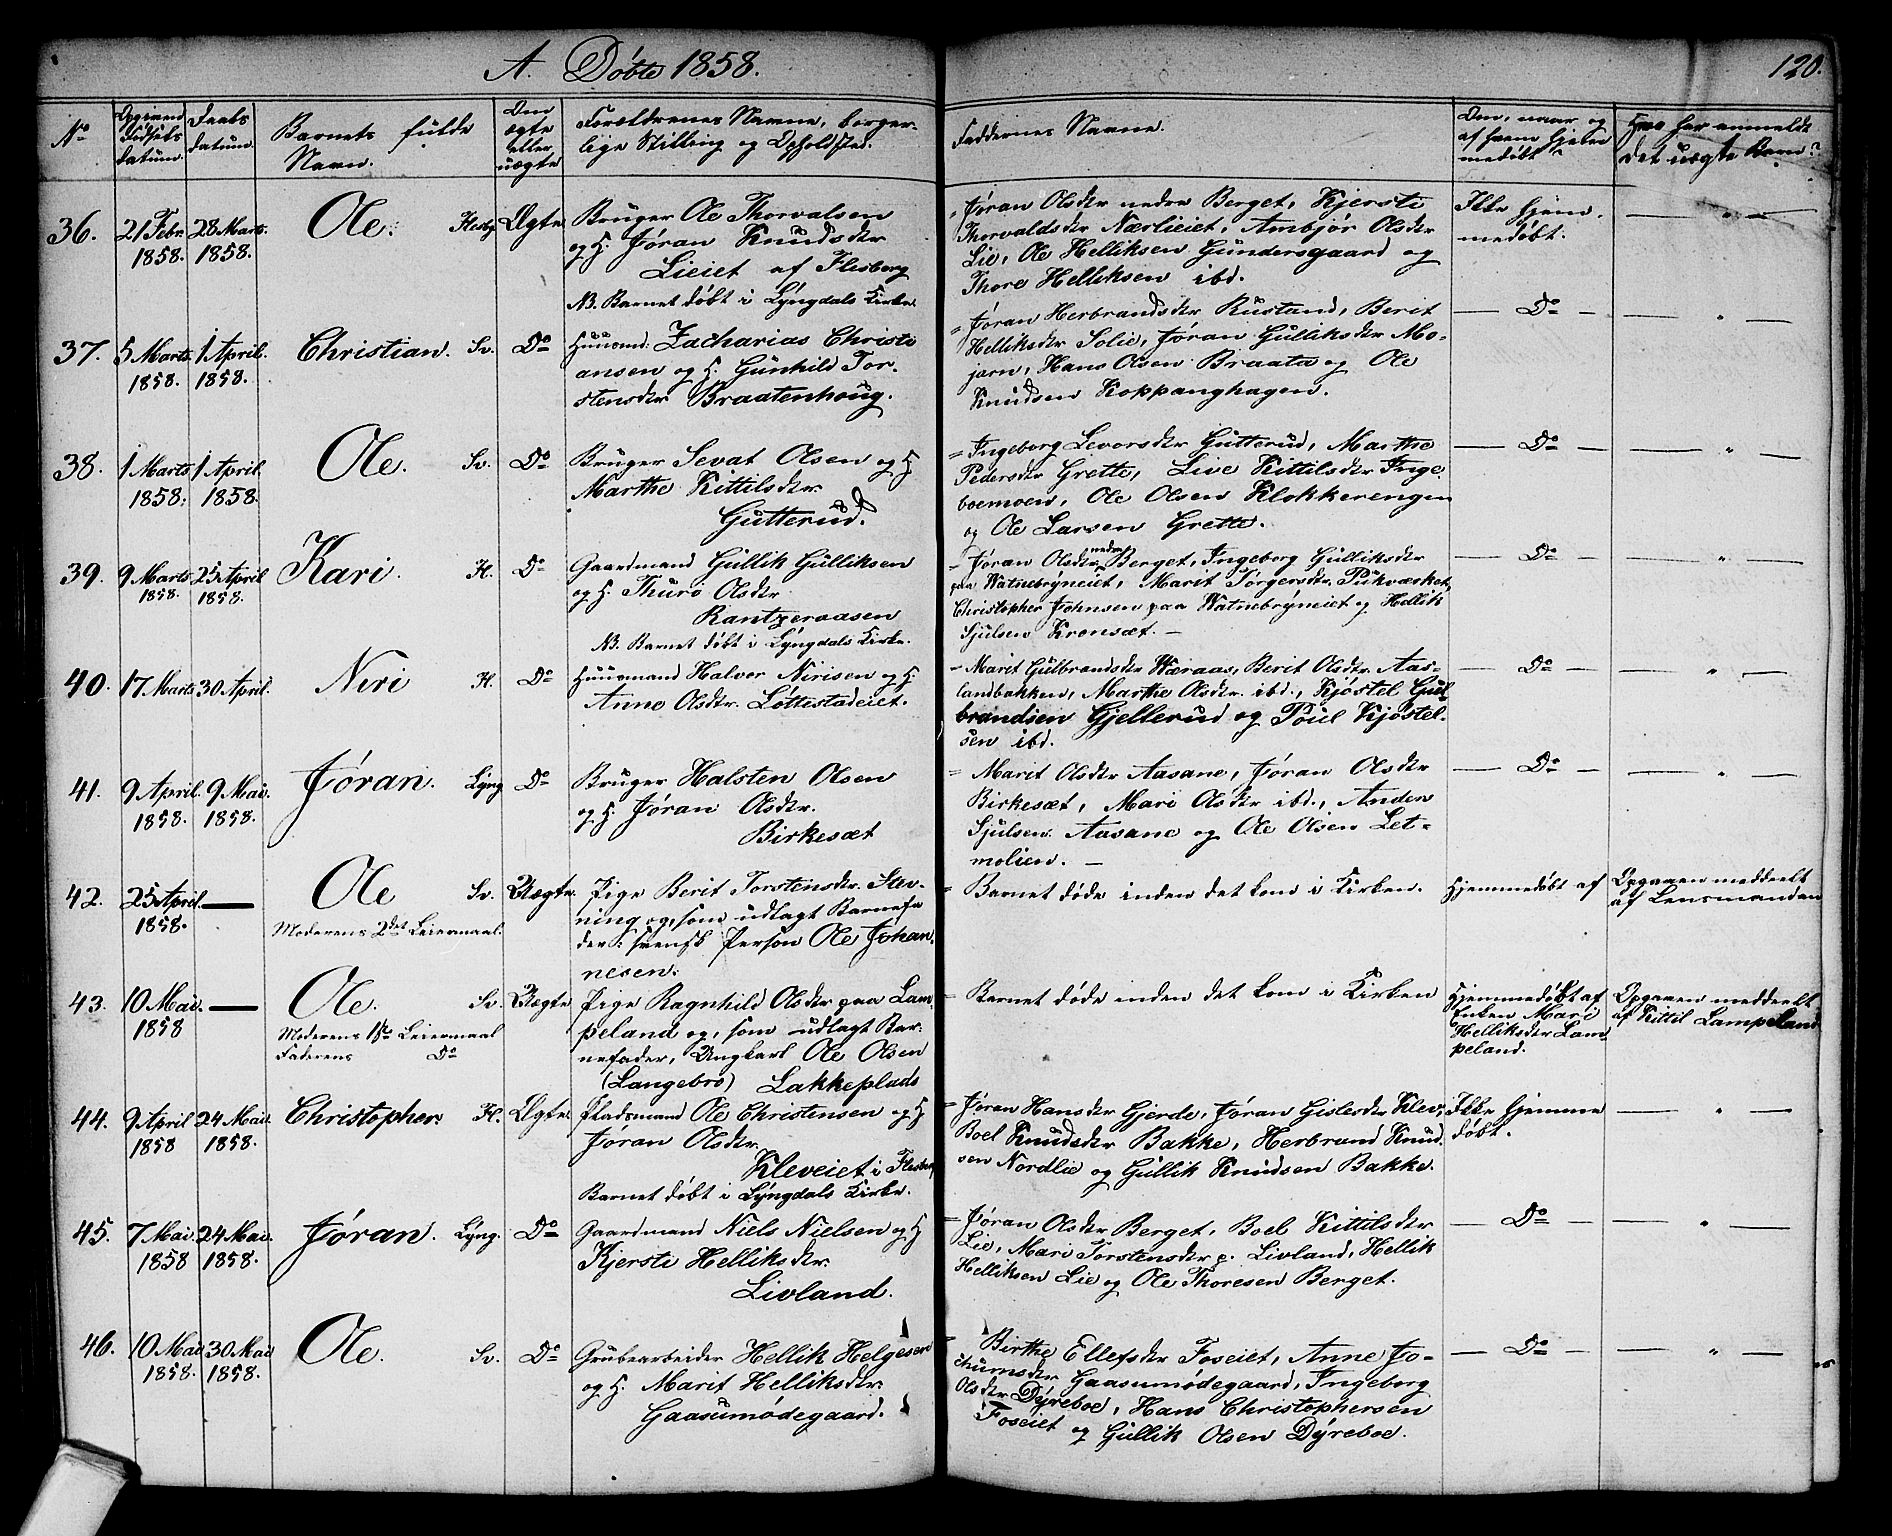 A. Døbte 1858.
120.
No
Opgivend Fødsels datum.
Daabs datum.
Barnets fulde Navn.
Om ægte eller uægte
Forældrenes Navne, borgerlige Stilling og Opholdsted.
Faddernes Navne.
Om, naar og af hvem hjemmedøbt
Hvo har anmeldt det uægte Barn?
36.
21 Febr. 1858.
28 Marts. 1858.
Ole.
Flesbg
Ægte
Bruger Ole Thorvalsen
og H. Jøran Knudsdtr
Lieiet af Flesberg
NB. Barnet døbt i Lyngdals Kirke.
Jøran Olsdtr nedre Berget, Kjersti
Thorvaldsdtr Nærlieiet, Ambjør Olsdtr
Lie, Ole Helliksen Gundersgaard og
Thore Helliksen ibd.
Ikke hjemmedøbt.
— " —
37.
5 Marts. 1858.
1 April. 1858.
Christian.
Sv.
Do
Huusmd. Zacharias Christi
ansen og H. Gunhild Tor-
stensdtr Braatenhoug.
= Jøran Herbrandsdtr Rustand, Berit
Helliksdtr Solie, Jøran Gulliksdtr Mo-
jarn, Hans Olsen Braata og Ole
Knudsen Koppanghagen.
— Do —
— " —
38.
1 Marts 1858.
1 April. 1858.
Ole.
Sv.
Do
Bruger Sevat Olsen og H
Marthe Kittilsdtr.
Gutterud.
= Ingeborg Levorsdtr Gutterud, Marthe
Pedersdtr Grette, Live Kittilsdtr Inge
boemoen, Ole Olsen Klokkerengen
og Ole Larsen Grette.
— Do —
— " —
39.
9 Marts 1858.
25 April 1858.
Kari.
H.
Do
Gaardmand Gullik Gulliksen
og H. Thuro Olsdtr
Rantzeraasen
NB. Barnet døbt i Lyngdals Kirke.
= Jøran Olsdtr nedre Berget, Ingeborg Gulliksdtr
paa Watnebryneiet, Marit Torgersdtr
Christopher Johnsen paa Watnebryneiet og Hellik
Sjulsen Kronsæt. —
— Do —
— " —
40.
17 Marts
30 April.
Neri
H.
Do
Huusmand Halvor Nirisen og H.
Anne Olsdtr. Løttestadeiet.
= Marit Gulbrandsdtr Wæraas, Berit Olsdtr. Aas-
landbakken, Marthe Olsdtr. ibd., Kjøstel Gul
brandsen Gjellerud og Poul Kjøstel-
sen ibd.
— Do —
— " —
41.
9 April. 1858.
9 Mai. 1858.
Jøran.
Lyng
Do
Bruger Halsten Olsen
og H. Jøran Olsdtr.
Birkesæt
= Marit Olsdtr Aasane, Jøran Olsdtr
Birkesæt, Mari Olsdtr ibd., Anden
Sjulsen Aasane og Ole Olsen Let=
molien. —
— Do —
— " —
42.
25 April. 1858.
—
Ole
Sv.
Uægte.
Moderens 2det Leiermaal.
Pige Berit Torstensdtr. Stev-
ning og, som udlagt Barnefa
der: svensk Person Ole Johan
nesen.
= Barnet døde inden det kom i Kirken.
Hjemmedøbt af
Opgaven meddeelt
af Lensmanden
43.
10 Mai. 1858
—
Ole.
Sv.
Uægte
Moderens 1ste Leiermaal
Faderens Do
Pige Ragnhild Olsdtr paa Lam
peland og, som udlagt Bar-
nefader, Ungkarl Ole Olsen
(Langebro) Lakkeplads
= Barnet døde inden det kom i Kirken
Hjemmedøbt af
Enken Mari
Helliksdtr Lam-
peland.
Opgaven meddeelt
af Kittil Lampeland
44.
9 April 1858
24 Mai. 1858.
Christopher.
Fl.
Ægte.
Pladsmand Ole Christensen og H
Jøran Olsdtr.
Kleveiet i Flesberg
Barnet døbt i Lyngdals Kirke.
= Jøran Hansdtr Gjerde, Jøran Gislesdtr Klev,
Boel Knudsdtr Bakke, Herbrand Knud
sen Nordlie og Gullik Knudsen Bakke.
Ikke hjemme
døbt.
— " —
45.
7 Mai. 1858
24 Mai. 1858.
Jøran.
Lyng.
Do
Gaardmand Niels Nielsen og H
Kjersti Helliksdtr.
Livland.
= Jøran Olsdtr Berget, Boel Kittilsdtr
Lie, Mari Torstensdtr p. Livland, Hellik
Helliksen Lie og Ole Thoresen Berget.
— Do —
— " —
46.
10 Mai 1858.
30 Mai 1858.
Ole.
Sv.
Do
Grubearbeider Hellik Helgesen
og H. Marit Helliksdtr.
Gaasumødegaard.
= Birthe Ellefsdtr Foseiet, Anne Jo-
chumsdtr Gaasumødegaard, Ingeborg
Olsdtr Dyreboe, Hans Christophersen
Foseiet og Gullik Olsen Dyreboe.
— Do —
— " —